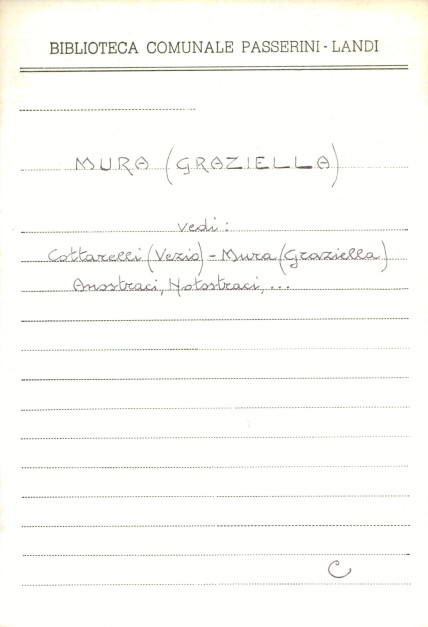 BIBLIOTECA COMUNALE PASSERINI - LANDI
MURA (GRAZIELLA)
vedi :
Cottarelli (Vezio) - Mura (Graziella)
Anostraci, Notostraci, ...
C